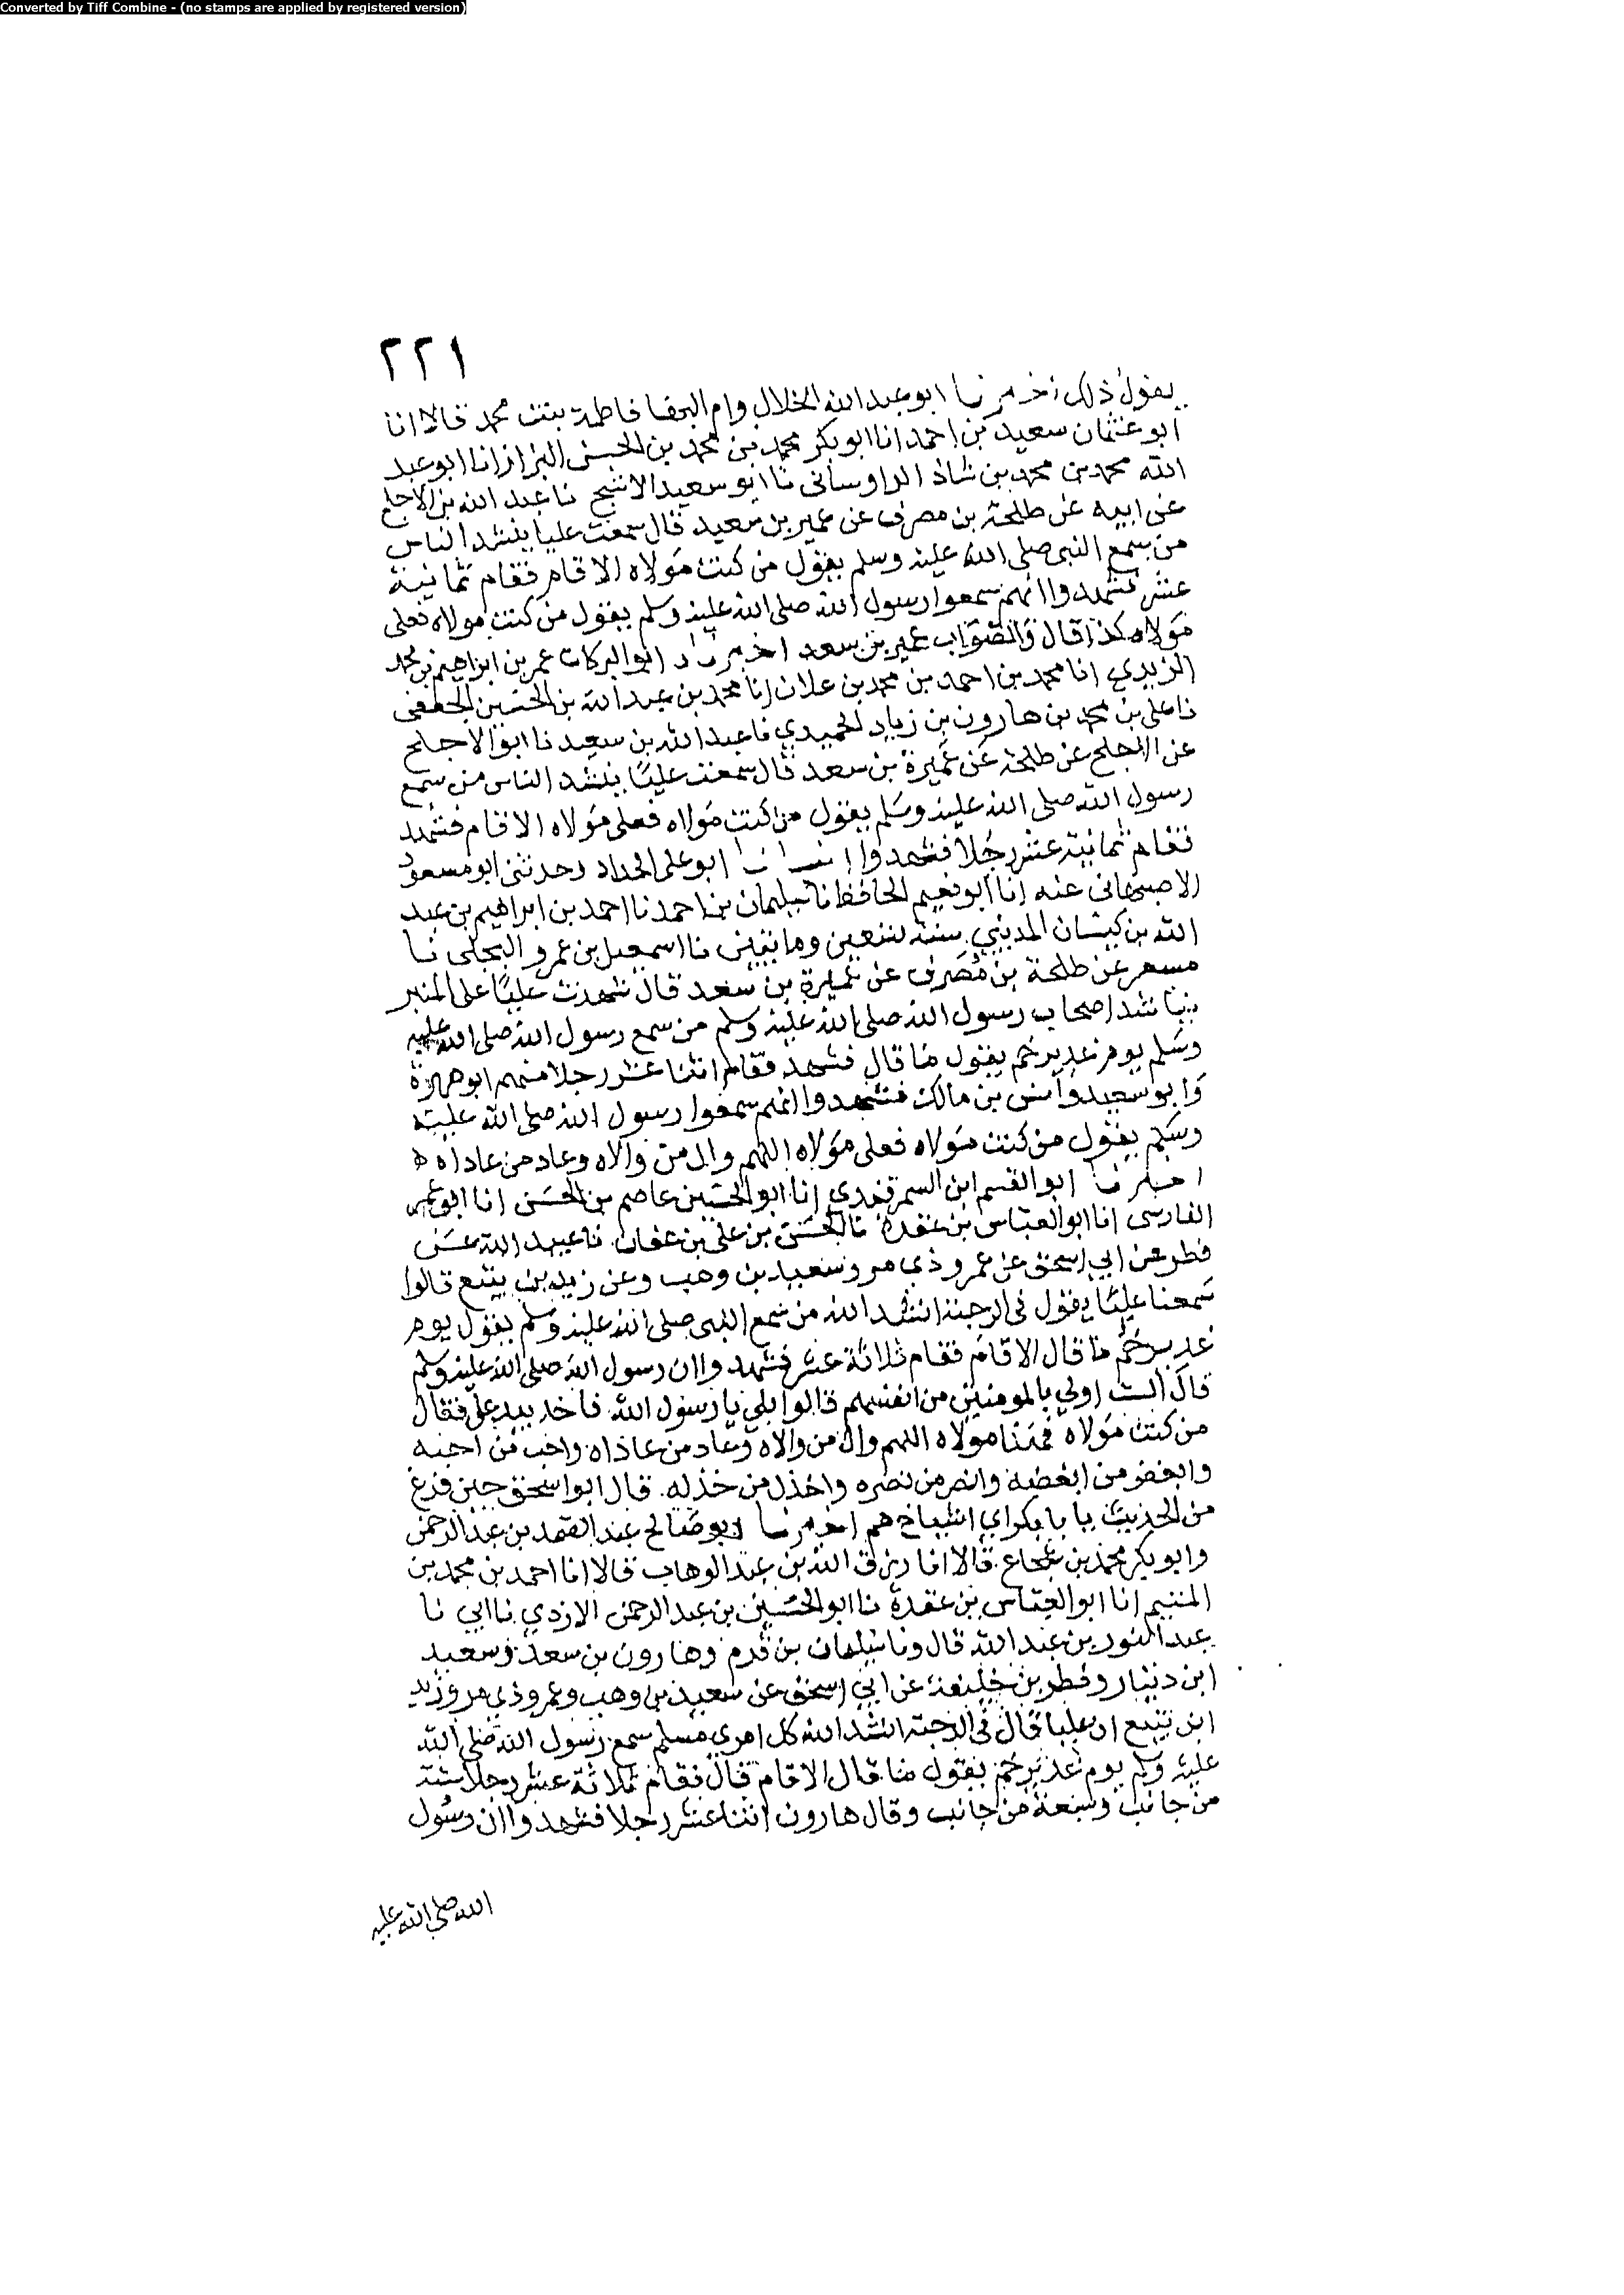 Converted by Tiff Combine - (no stamps are applied by registered version)
٢٢١
يقول ذلك اخبرنا ابو عبد الله الخلال وام البها فاطمة بنت محمد قالا انا
ابو عثمان سعيد بن احمد انا ابو بكر محمد بن محمد بن الحسن البزاز انا ابو عبد
الله محمد بن محمد بن شاذ الراوساني نا ابو سعيد الاشج نا عبد الله بن الاجلح
عن ابيه عن طلحة بن مصرف عن عمير بن سعيد قال سمعت عليا ينشد الناس
من سمع النبي صلى الله عليه وسلم يقول من كنت مولاه الا قام فقام ثمانية
عشر فشهدوا انهم سمعوا رسول الله صلى الله عليه وسلم يقول من كنت مولاه فعلي
مولاه كذا قال والصواب عمير بن سعد اخبرنا ابو البركات عمر بن ابراهيم بن محمد
الزيدي انا محمد بن احمد بن محمد بن علان انا محمد بن عبد الله بن الحسين الجعفي
نا علي بن محمد بن هارون بن زياد الحميدي نا عبد الله بن سعيد نا ابو الاجلح
عن الاجلح عن طلحة عن عميرة بن سعد قال سمعت عليا ينشد الناس من سمع
رسول الله صلى الله عليه وسلم يقول من كنت مولاه فعلي مولاه الا قام فشهد
فقام ثمانية عشر رجلا فشهدوا انبانا ابو علي الحداد وحدثني ابو مسعود
الاصبهاني عنه انا ابو نعيم الحافظ نا سليمان بن احمد نا احمد بن ابراهيم بن عبد
الله بن كيسان المديني سنة تسعين ومايتين نا اسمعيل بن عمرو البجلي نا
مسعر عن طلحة بن مصرف عن عميرة بن سعد قال شهدت عليا على المنبر
يناشد اصحاب رسول الله صلى الله عليه وسلم من سمع رسول الله صلى الله عليه
وسلم يوم غدير خم يقول ما قال فشهد فقام اثنا عشر رجلا منهم ابو هريرة
وابو سعيد وانس بن مالك فشهدوا انهم سمعوا رسول الله صلى الله عليه
وسلم يقول من كنت مولاه فعلي مولاه اللهم وال من والاه وعاد من عاداه ه
اخبرنا ابو القسم ابن السمرقندي انا ابو الحسين عاصم بن الحسن انا ابو عمر
الفارسي انا ابو العباس بن عقدة نا الحسن بن علي بن عفان نا عبيد الله عن
فطر عن ابي اسحق عن عمرو ذي مر وسعيد بن وهب وعن زيد بن يثيع قالوا
سمعنا عليا يقول في الرحبة انشد الله من سمع النبي صلى الله عليه وسلم يقول يوم
غدير خم ما قال الا قام فقام ثلاثة عشر فشهدوا ان رسول الله صلى الله عليه وسلم
قال الست اولى بالمومنين من انفسهم قالوا بلى يا رسول الله فاخذ بيد علي فقال
من كنت مولاه فهذا مولاه اللهم وال من والاه وعاد من عاداه واحب من احبه
وابغض من ابغضه وانصر من نصره واخذل من خذله قال ابو اسحق حين فرغ
من الحديث يا با بكر اي اشياخ هم اخبرنا ابو صالح عبد الصمد بن عبد الرحمن
وابو بكر محمد بن شجاع قالا انا رزق الله بن عبد الوهاب قالا انا احمد بن محمد بن
المتيم انا ابو العباس بن عقدة نا ابو الحسين بن عبد الرحمن الازدي نا ابي نا
عبد النور بن عبد الله قال ونا سليمان بن قرم وهارون بن سعد وسعيد
ابن دينار وفطر بن خليفة عن ابي اسحق عن سعيد بن وهب وعمرو ذي مر وزيد
ابن يثيع ان عليا قال في الرحبة انشد الله كل امرئ مسلم سمع رسول الله صلى الله
عليه وسلم يوم غدير خم يقول ما قال الا قام قال فقام ثلاثة عشر رجلا ستة
من جانب وسبعة من جانب وقال هارون اثنا عشر رجلا فشهدوا ان رسول
الله صلى الله عليه